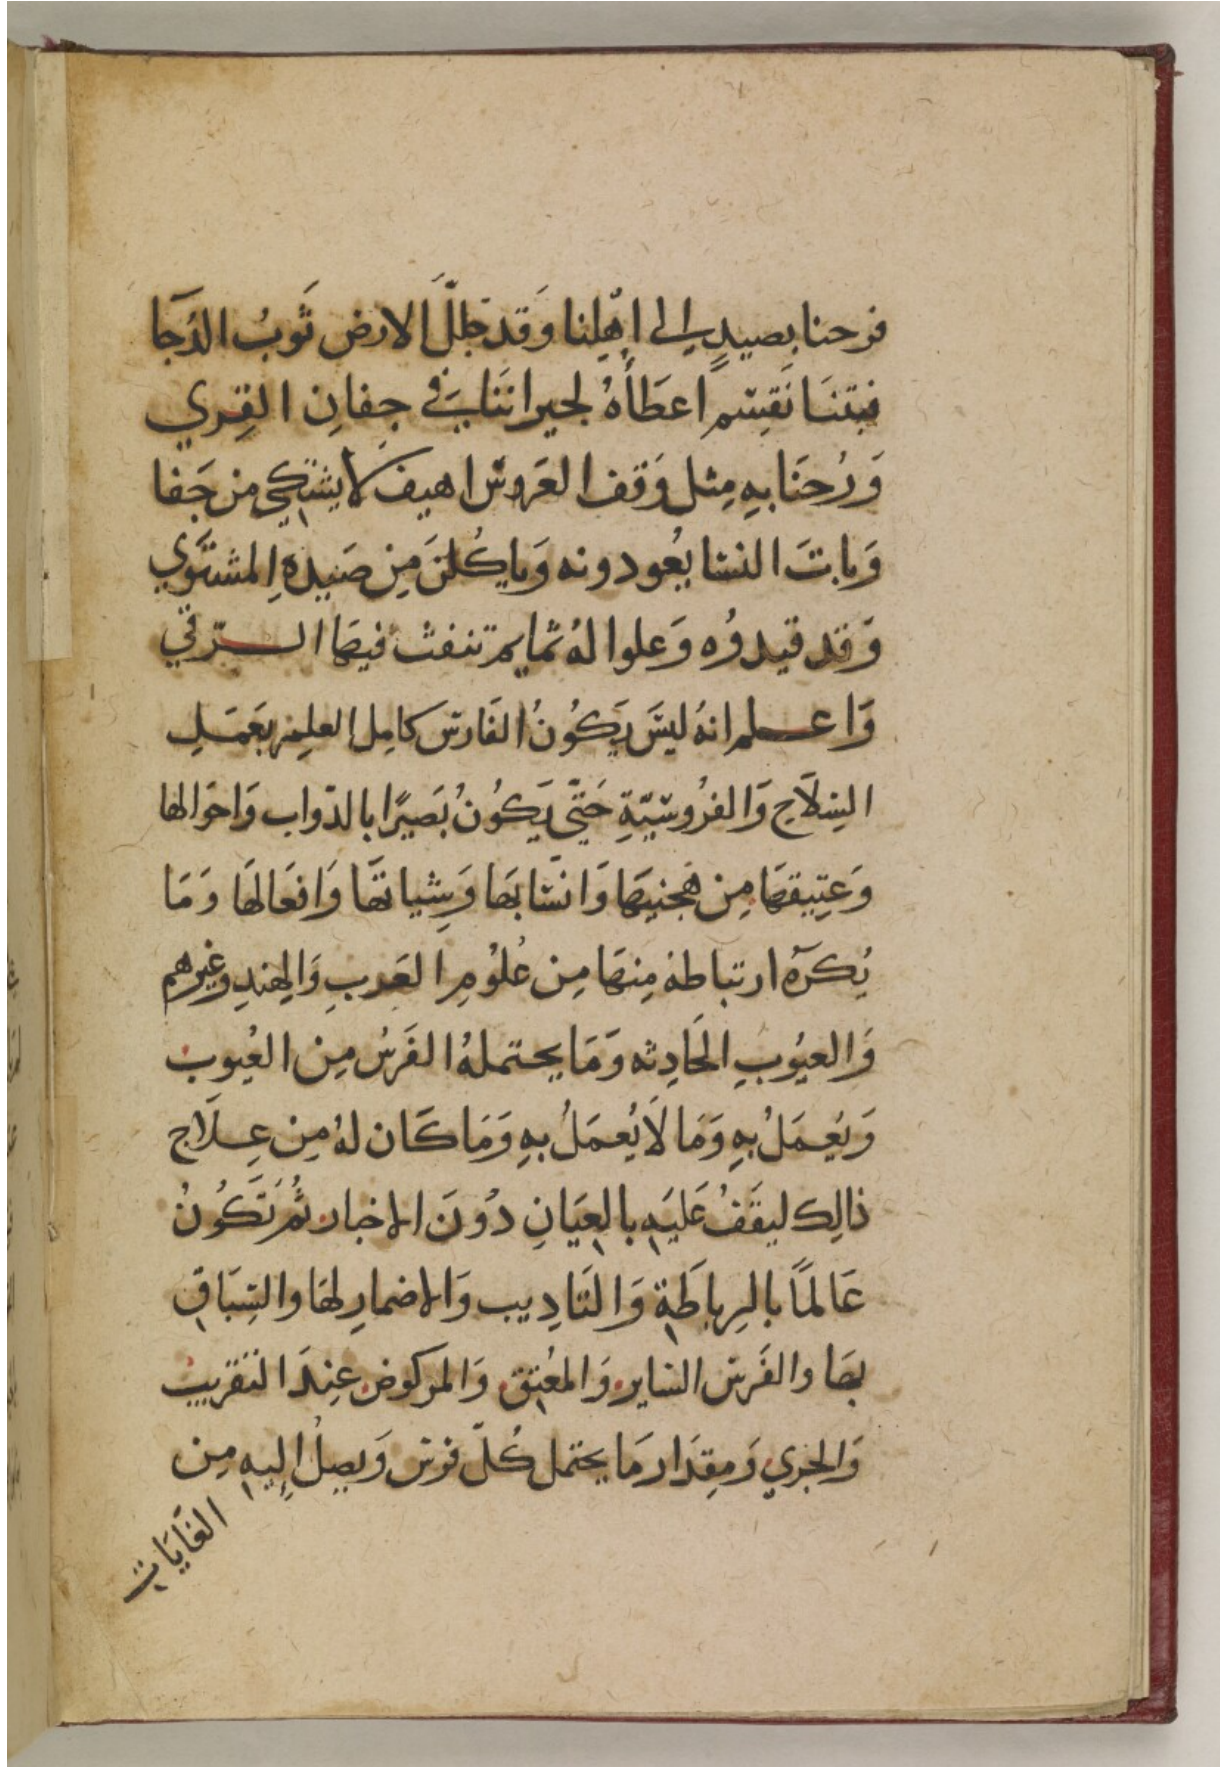 فرحنا بصيدٍ إلى اهْلِنا وَقد جلّلَ الارض ثَوبُ الدُجَا
فبتنَا نَقسِّم اعطَاهُ لجيرانَنا في جفانِ القِري
وَرُحنَا بهِ مِثل وَقف العَروسْ اهيفَ لا يشتكي من جَفا
وَباتَ النسْا يعُودونه وَياكُلنَ مِن صَيدهِ المشتَوي
وَقد قيدوُه وَعلوا لهُ تمايم تنفث فيهَا الرقي
وَاعلم انهُ ليسَ يَكُونُ الفَارسْ كامِل العلِمِ بعَمَلِ
السِلَاحِ وَالفرُوسيّةِ حَتّي يَكُونُ بَصيرًا بالدّواب وَاحوَالها
وَعتِيقهَا مِن هُجنِيهَا وَانسَابهَا وَشِياتهَا وَافعَالهَا وَمَا
يُكرَهُ ارتباطهُ مِنهَا مِن عُلوُمِ العَربِ وَالهِندِ وغيرهم
وَالعيُوبِ الحَادِثه وَمَا يحتملهُ الفَرسُ مِن العُيوب
وَيُعمَلُ بهِ وَمَا لَا يُعمَلُ بهِ وَمَا كَان لهُ مِن عِلَاج
ذالِك ليقَفُ عَليَهِ بالعِيَانِ دوُنَ الاخبار ثُمَ تَكُونُ
عَالمًا بالرِباطَةِ وَالتَادِيب وَالاضمارِ لهَا والسِّبَاقِ
بهَا والفَرسْ السْاير وَالمُعِنق وَالمركوض عِندَ التَقريب
وَالجري وَمِقدَار مَا يحتمل كُلّ فرسْ وَيصِلُ إليهِ مِن
الغَايَات